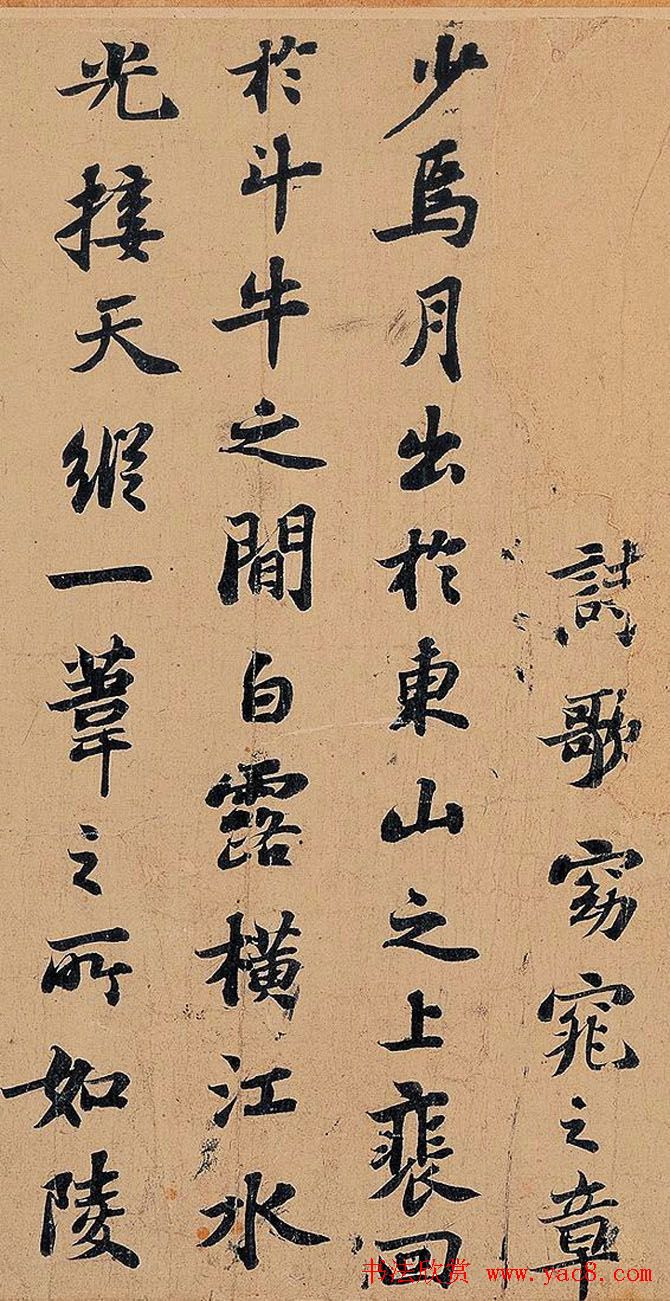 謌歌窈窕之章
少焉月出於東山之上裴回
於斗牛之間白露橫江水
光接天縱一葦之所如陵
书法欣赏 www.yac8.com